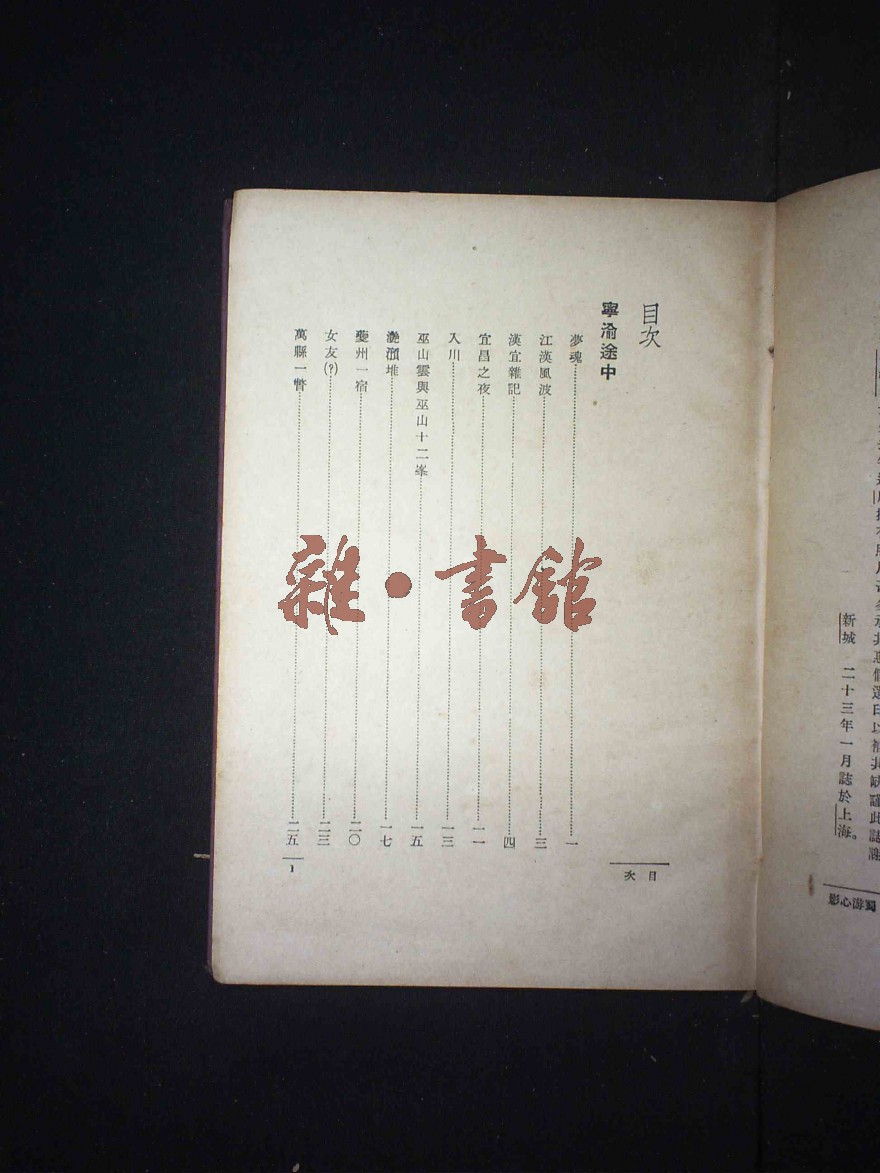 新城　二十三年一月誌於上海。
蜀游心影
目次
寧渝途中
夢魂……一
江漢風波……三
漢宜雜記……四
宜昌之夜……一一
入川……一三
巫山雲與巫山十二峯……一五
灔澦堆……一七
夔州一宿……二〇
女友(?)……二三
萬縣一瞥……二五
目次
1
雜·書館